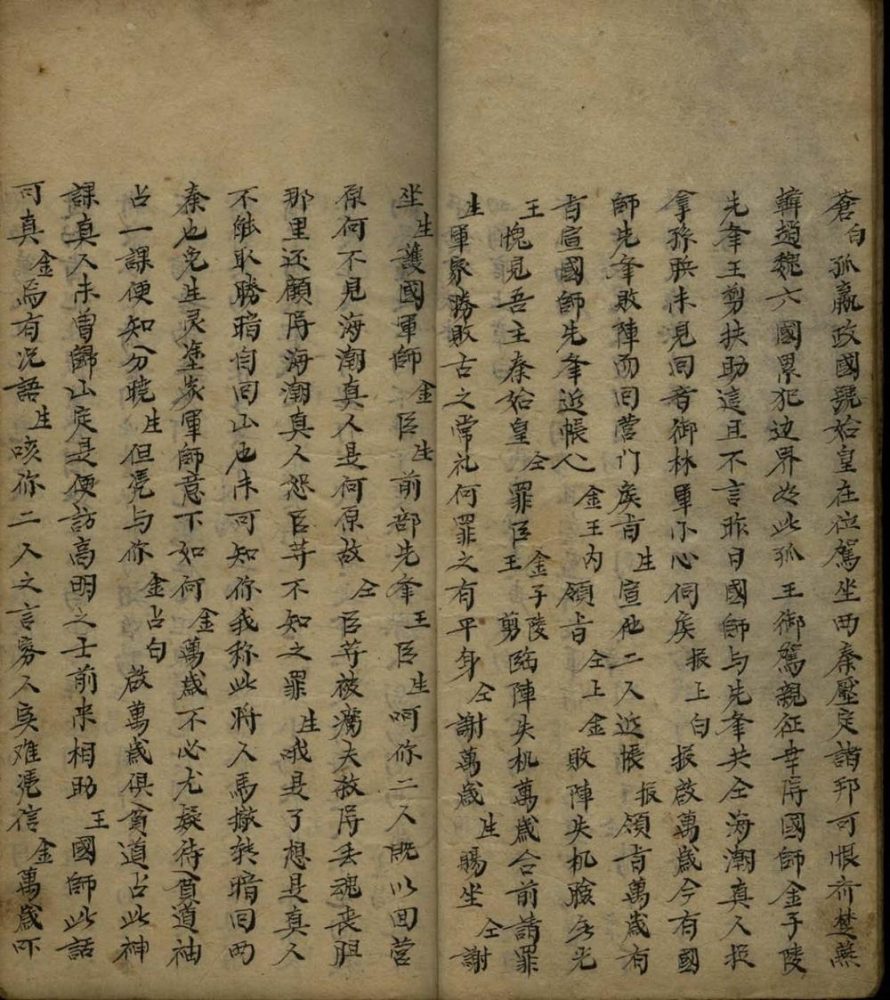 蒼白孤嬴政國號始皇在位駕坐西秦壓定諸邦可恨齐楚燕
韓趙魏六國累犯边界為此孤王御駕親征幸得國師金子陵
先夆王剪扶助這且不言昨日國師与先夆共仝海潮真人捉
拿孫臏未見回音御林軍小心伺矦 振上白 振啟萬歲今有國
師先夆敗陣而回营门矦旨 生 宣他二人近帳 振 領旨萬歲有
旨宣國師先夆近帳 金王内 領旨 仝上金 敗陣失机臉無光
王 愧見吾主秦始皇 仝 罪臣 金子陵 王剪 臨陣失机萬歲台前請罪
生 軍家勝敗古之常礼何罪之有平身 仝 謝萬歲 生 賜坐 仝 謝
坐 生 護國軍師 金 臣 生 前部先夆 王 臣 生 呵你二人既以回营
原何不見海潮真人是何原故 仝 臣等被瘸夫殺得丢魂丧胆
那里还顧得海潮真人恕臣等不知之罪 生 哦是了想是真人
不能取勝暗自回山也未可知你我称此將人馬撤转暗回西
秦也免生灵塗炭軍師意下如何 金 萬歲不必尤疑待貧道袖
占一課便知分曉 生 但凭与你 金占白 啟萬歲俱貧道占此神
課真人未曾歸山定是便訪高明之士前来相助 王 國師此話
可真 金 焉有況語 生 咳你二人之言寡人寔难凭信 金 萬歲吓